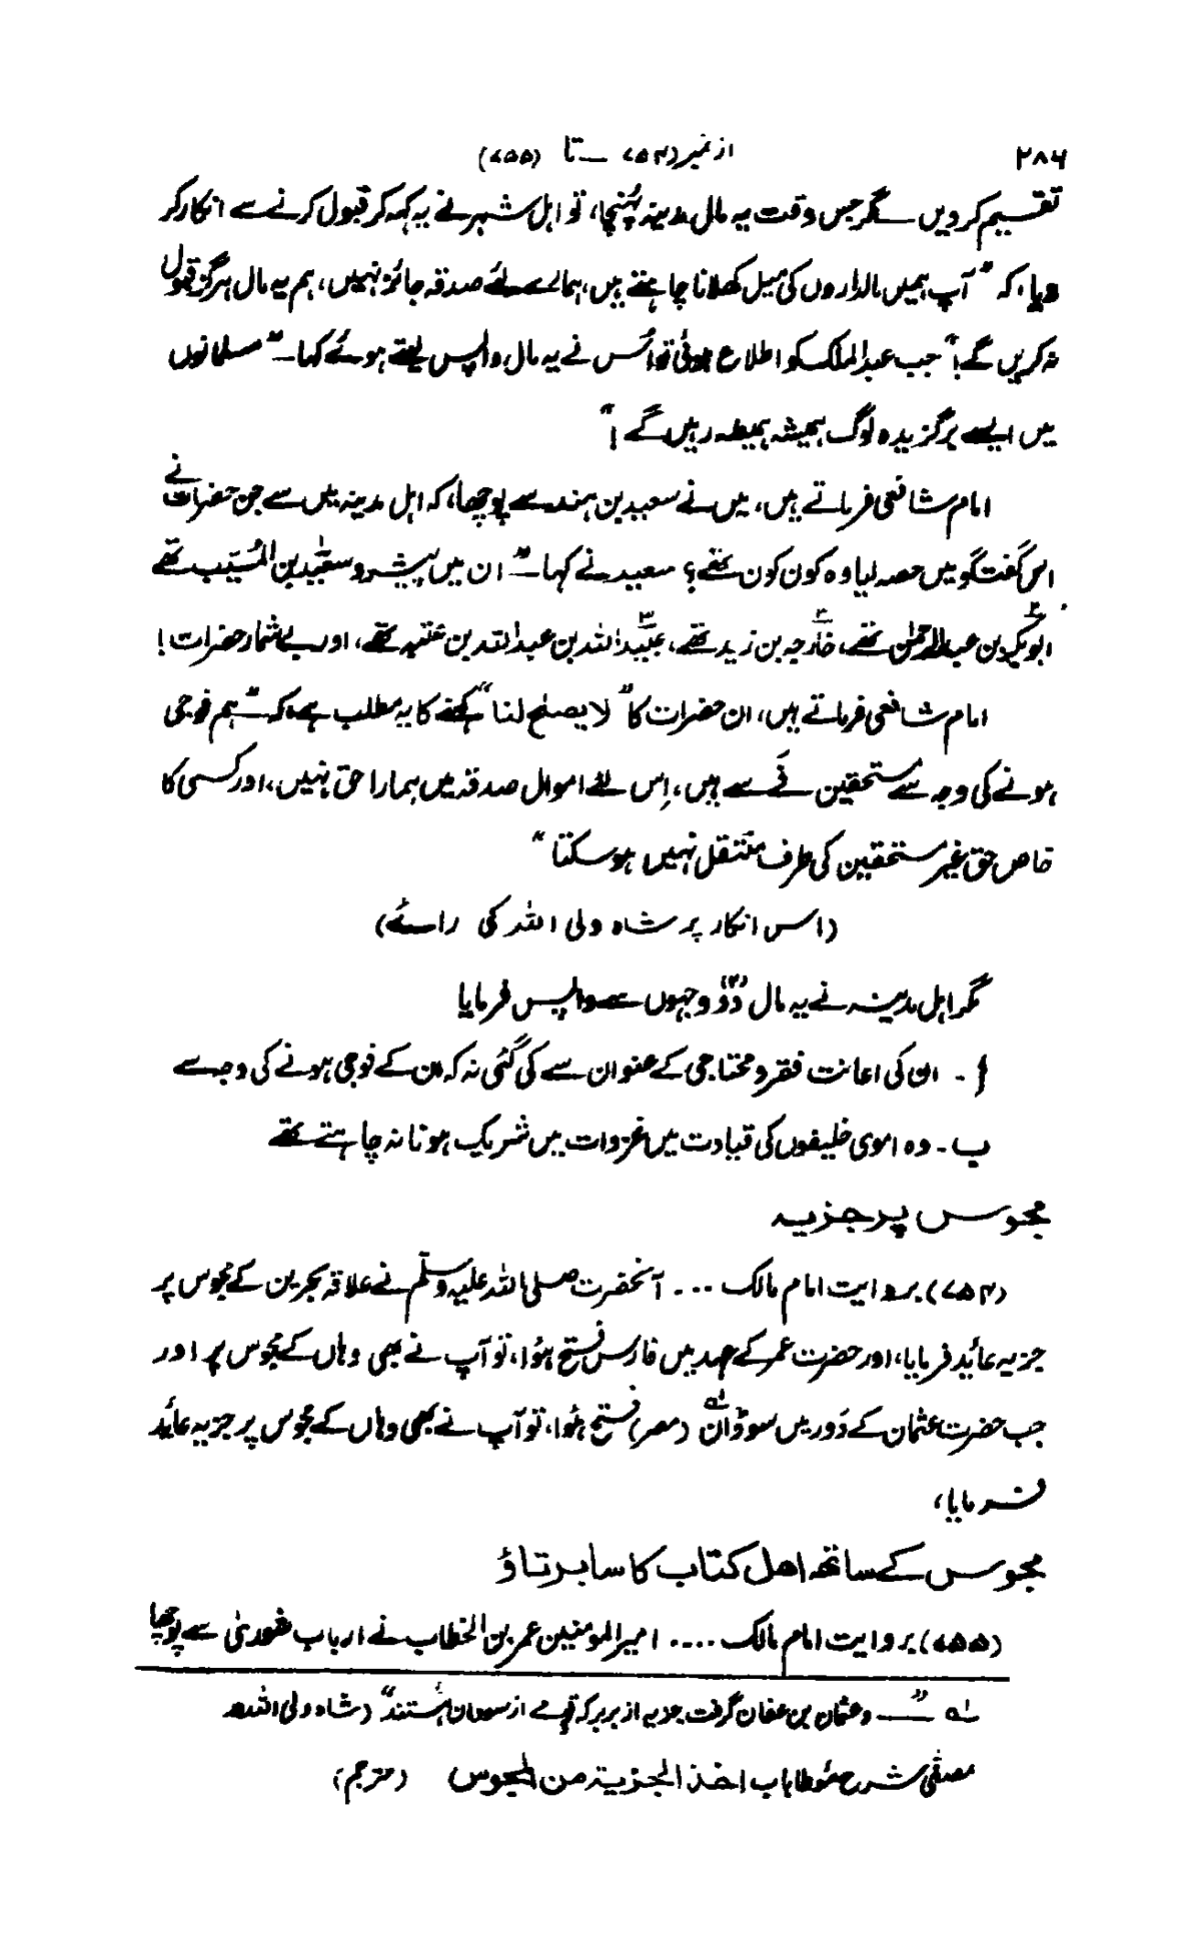 ۲۸۶
از نمبر (۷۵۴) ــ تا (۷۵۵)
تقسیم کردیں ــ مگر جس وقت یہ مال مدینہ پہنچا، تو اہل شہر نے یہ کہہ کر قبول کرنے سے انکار کر
دیا، کہ "آپ ہمیں مالداروں کی میل کھلانا چاہتے ہیں، ہمارے لئے صدقہ جائز نہیں، ہم یہ مال ہرگز قبول
نہ کریں گے!" جب عبدالملک کو اطلاع ہوئی تو اُس نے یہ مال واپس لیتے ہوئے کہا ــ "مسلمانوں
میں ایسے برگزیدہ لوگ ہمیشہ ہمیشہ رہیں گے!"
امام شافعی فرماتے ہیں، میں نے سعید بن ہند سے پوچھا، کہ اہل مدینہ میں سے جن حضرات نے
اس گفتگو میں حصہ لیا وہ کون کون تھے؟ سعید نے کہا ــ "ان میں پیشرو سعید بن المسیب تھے
ابوبکر بن عبدالرحمٰن تھے، خارجہ بن زید تھے، عبیداللہ بن عبداللہ بن عتبہ تھے، اور بے شمار حضرات!
امام شافعی فرماتے ہیں، ان حضرات کا "لا یصلح لنا" کہنے کا یہ مطلب ہے، کہ ــ "ہم فوجی
ہونے کی وجہ سے مستحقین فَے سے ہیں، اِس لئے اموال صدقہ میں ہمارا حق نہیں، اور کسی کا
خاص حق غیر مستحقین کی طرف منتقل نہیں ہو سکتا"
(اس انکار پر شاہ ولی اللہ کی رائے)
مگر اہل مدینہ نے یہ مال دو (۲) وجہوں سے واپس فرمایا
أ - ان کی اعانت فقر و محتاجی کے عنوان سے کی گئی نہ کہ ان کے فوجی ہونے کی وجہ سے
ب - وہ اموی خلیفوں کی قیادت میں غزوات میں شریک ہونا نہ چاہتے تھے
مجوس پر جزیہ
(۷۵۴) بروایت امام مالک ... آنحضرت صلی اللہ علیہ وسلم نے علاقہ بحرین کے مجوس پر
جزیہ عائد فرمایا، اور حضرت عمر کے عہد میں فارس فتح ہوا، تو آپ نے بھی وہاں کے مجوس پر اور
جب حضرت عثمان کے دَور میں سوڈان؂۱ (مصر) فتح ہُوا، تو آپ نے بھی وہاں کے مجوس پر جزیہ عائد
فرمایا،
مجوس کے ساتھ اهل کتاب کا سا برتاؤ
(۷۵۵) بروایت امام مالک .... امیرالمومنین عمر بن الخطاب نے ارباب شوریٰ سے پوچھا
؂۱ ــ "وعثمان بن عفان گرفت جزیہ از بربر کہ قومے از سودان ہستند" (شاہ ولی اللہ
مصفّٰی شرح مؤطا باب اخذ الجزیۃ من المجوس (مترجم)